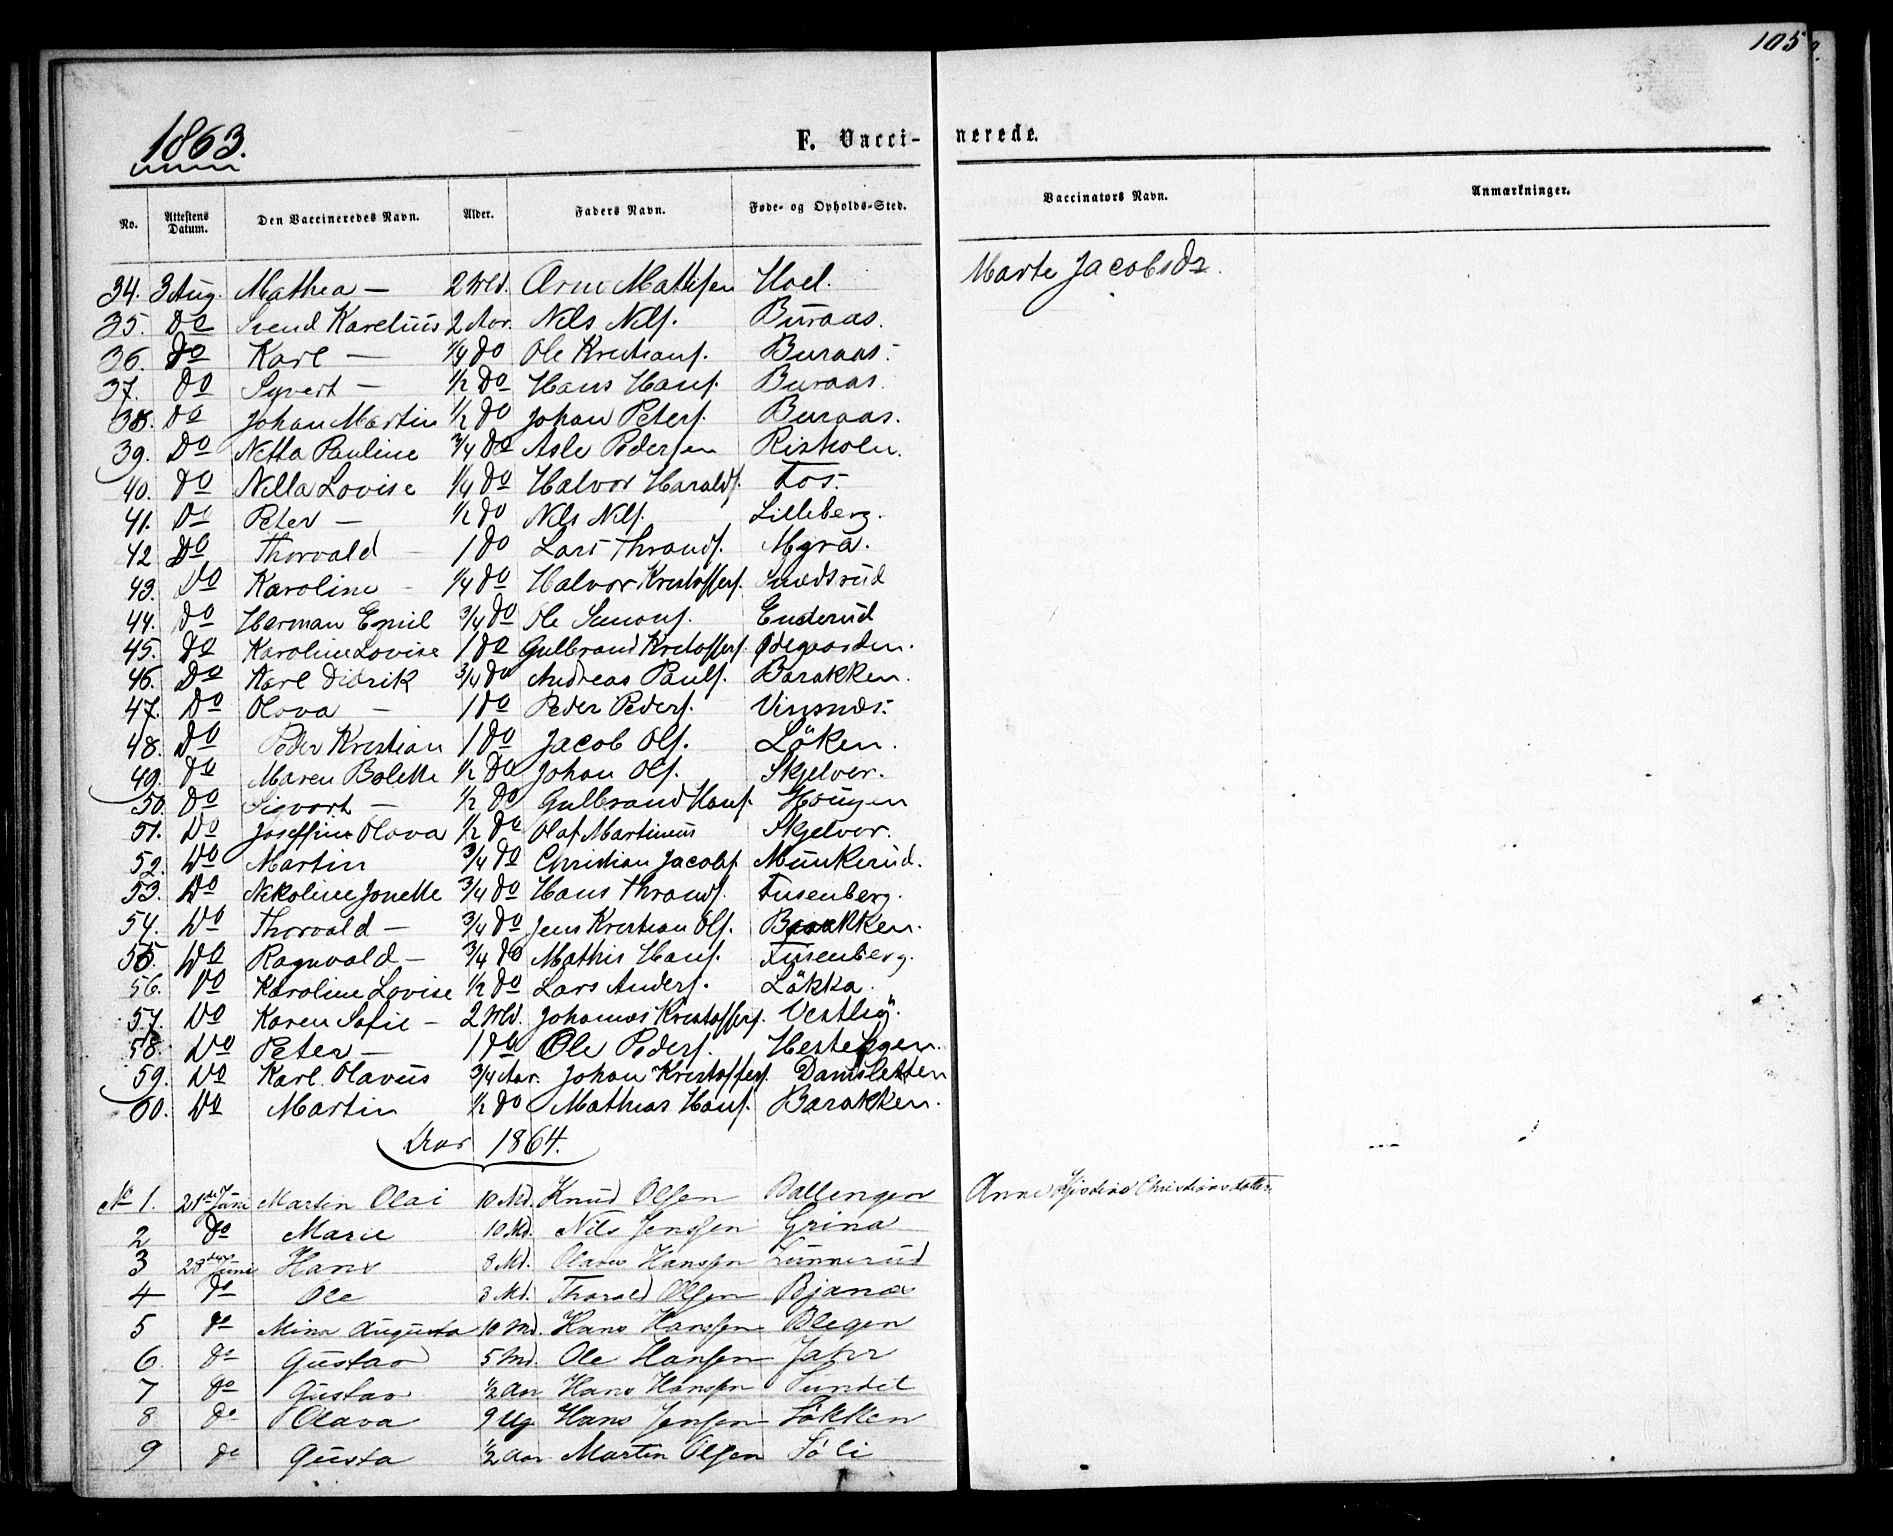 105
1863.
F. Vaccinerede.
No. Attestens Datum. Den Vaccineredes Navn. Alder. Faders Navn. Føde- og Opholds-Sted. Vaccinators Navn. Anmærkninger.
34. 3 Aug. Mathea — 2 Md. Arne Mathisen Hoel. Marte Jacobsdr.
35. Do Svend Karelius 2 Aar. Nils Nils. Buraas.
36. Do Karl — 1/4 Do Ole Kristians. Buraas.
37. Do Syvert — 1/2 Do Hans Hans. Buraas.
38. Do Johan Martin 1/2 Do Johan Peters. Buraas.
39. Do Netta Pauline 3/4 Do Asle Pedersen Risholm.
40. Do Nilla Lovise 1/4 Do Halvor Haralds. Fos.
41. Do Peter — 1/2 Do Nils Nils. Lilleberg.
42 Do Thorvald — 1 Do Lars Thrands. Myra.
43. Do Karoline — 1/4 Do Halvor Kristoffers.
44. Do Herman Emil 3/4 Do Ole Simons. Enderud
45. Do Karoline Lovise 1 Do Gulbrand Kristoffers. Ødegaarden.
46. Do Karl Didrik 3/4 Do Andreas Pauls. Barakken.
47. Do Olova — 1 Do Peder Peders. Vinsnæs.
48. Do Peder Kristian 1 Do Jacob Ols. Löken.
49. Do Maren Bolette 1/2 Do Johan Ols. Skjelver.
50. Do Sigvart — 1/2 Do Gulbrand Hans. Hougen
51. Do Josefine Olova 1/2 Do Olaf Martinius Skjelver.
52. Do Martin 3/4 Do Christian Jacobs. Munkerud.
53. Do Nikoline Jonette 3/4 Do Hans Thrands. Fusenberg.
54. Do Thorvald — 3/4 Do Jens Kristian Ols. Barakken.
55. Do Ragnvald — 3/4 Do Mathis Hans. Fusenberg.
56. Do Karoline Lovise 1/2 Do Lars Anders. Lökka.
57. Do Karen Sofie — 2 Md. Johannes Kristoffers. Vestby.
58. Do Peter — 1 Do Ole Peders. Hestehagen.
59. Do Karl Olavus 3/4 Aar. Johan Kristoffers. Damsletten
60. Do Martin 1/2 Do Mathias Hans. Barakken.
Aar 1864.
No 1. 21de Juni Martin Olai 10 Md. Knud Olsen Ballengen Anne Kjistine Christiansdatter
2 do Marie 10 Md. Nils Jenssen Grina
3 28de Juni Hans 8 Md. Olaves Hanssen Lunnerud
4 do Ole 3 Md. Thorald Olsen Bjanæs
5 do Mina Augusta 10 Md. Hans Hanssen Blegen
6. do Gustav 5 Md. Ole Hansen
7 do Gustav 1/2 Aar Hans Hanssen Sundet
8 do Olava 9 Ug Hans Jensen Løkken
9 do Gusta 1/2 Aar Martin Olsen